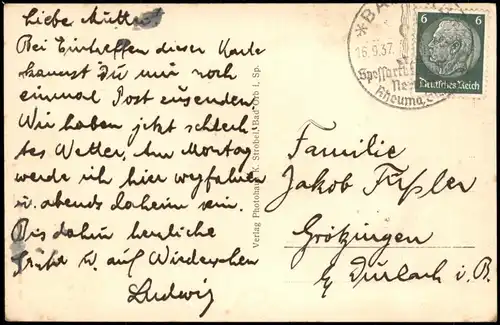 Liebe Mutter!
Bei Eintreffen dieser Karte
kannst Du mir noch
einmal Post zusenden.
Wir haben jetzt schlech-
tes Wetter. Am Montag
werde ich hier wegfahren
u. abends daheim sein.
Bis dahin herzliche
Grüße u. auf Wiedersehen
Ludwig
Verlag Photohaus K. Strobel, Bad Orb i. Sp.
* BAD
16.9.37
Spessart
Rheuma,
6 6
Deutsches Reich
Familie
Jakob
Grötzingen
b/ Durlach i. B.